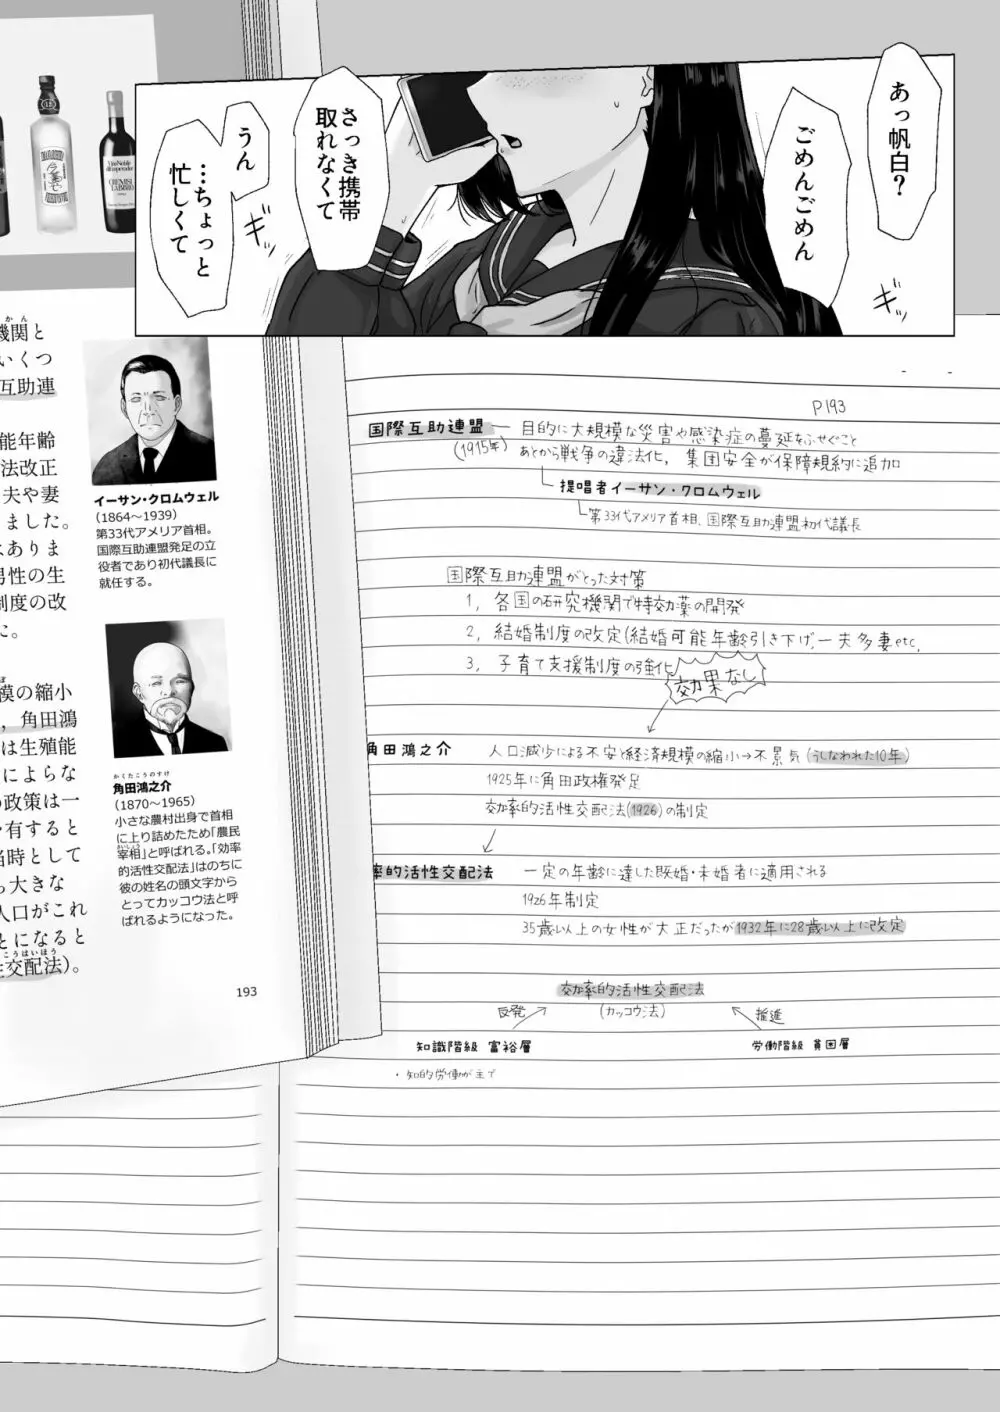 あっ帆白?
ごめんごめん
さっき携帯
取れなくて
うん
…ちょっと
忙しくて
ギッ
ギッ
機関と
いくつ
互助連
能年齢
法改正
夫や妻
ました。
はありま
男性の生
制度の改
た。
模の縮小
、角田鴻
は生殖能
によらな
の政策は一
を有すると
当時として
ら大きな
人口がこれ
とになると
性交配法)。
イーサン・クロムウェル
(1864〜1939)
第33代アメリア首相。
国際互助連盟発足の立
役者であり初代議長に
就任する。
かくたこうのすけ
角田鴻之介
(1870〜1965)
小さな農村出身で首相
に上り詰めたため「農民
宰相」と呼ばれる。「効率
的活性交配法」はのちに
彼の姓名の頭文字から
とってカッコウ法と呼
ばれるようになった。
193
P193
国際互助連盟 ─ 目的に大規模な災害や感染症の蔓延をふせぐこと
(1915年) あとから戦争の違法化, 集団安全が保障規約に追加
提唱者イーサン・クロムウェル
第33代アメリア首相、国際互助連盟初代議長
国際互助連盟がとった対策
1, 各国の研究機関で特効薬の開発
2, 結婚制度の改定(結婚可能年齢引き下げ,一夫多妻etc,
3, 子育て支援制度の強化
効果なし
角田鴻之介 人口減少による不安と経済規模の縮小→不景気(うしなわれた10年)
1925年に角田政権発足
効率的活性交配法(1926)の制定
率的活性交配法 ─ 一定の年齢に達した既婚・未婚者に適用される
1926年制定
35歳以上の女性が大正だったが1932年に28歳以上に改定
効率的活性交配法
(カッコウ法)
反発
推進
知識階級 富裕層
労働階級 貧困層
・知的労働が主で